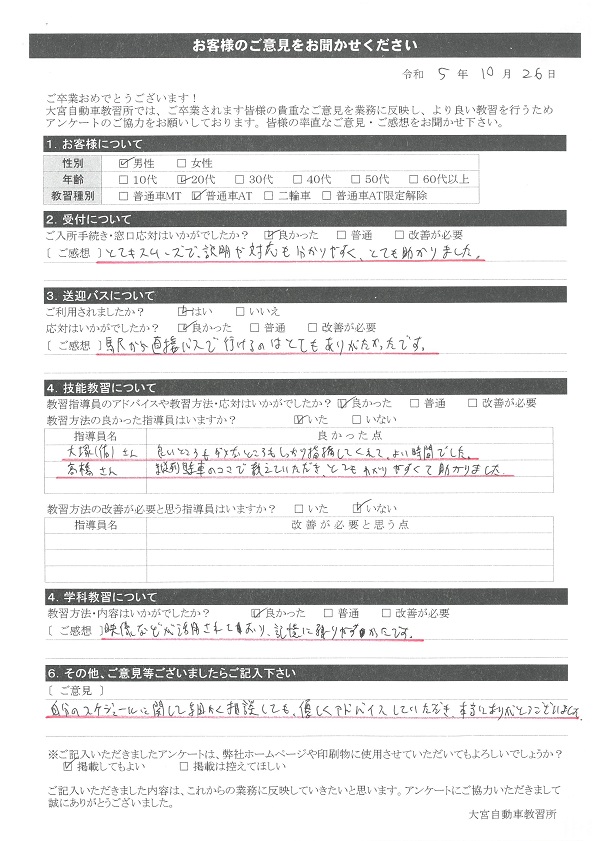 お客様のご意見をお聞かせください
令和 5 年 10 月 26 日
ご卒業おめでとうございます！
大宮自動車教習所では、ご卒業されます皆様の貴重なご意見を業務に反映し、より良い教習を行うため
アンケートのご協力をお願いしております。皆様の率直なご意見・ご感想をお聞かせ下さい。
1. お客様について
性別 ☑男性 □女性
年齢 □10代 ☑20代 □30代 □40代 □50代 □60代以上
教習種別 □普通車MT ☑普通車AT □二輪車 □普通車AT限定解除
2. 受付について
ご入所手続き・窓口応対はいかがでしたか？ ☑良かった □普通 □改善が必要
[ ご感想 ] とてもスムーズで、説明や対応も分かりやすく、とても助かりました。
3. 送迎バスについて
ご利用されましたか？ ☑はい □いいえ
応対はいかがでしたか？ ☑良かった □普通 □改善が必要
[ ご感想 ] 駅から直接バスで行けるのはとてもありがたかったです。
4. 技能教習について
教習指導員のアドバイスや教習方法・応対はいかがでしたか？ ☑良かった □普通 □改善が必要
教習方法の良かった指導員はいますか？ ☑いた □いない
指導員名 良かった点
大塚(佑)さん 良いところもダメなところもしっかり指摘してくれて、よい時間でした。
高橋さん 縦列駐車のコツで教えていただき、とてもわかりやすくて助かりました。
教習方法の改善が必要と思う指導員はいますか？ □いた ☑いない
指導員名 改善が必要と思う点
4. 学科教習について
教習方法・内容はいかがでしたか？ ☑良かった □普通 □改善が必要
[ ご感想 ] 映像などが活用されており、記憶に残りやすかったです。
6. その他、ご意見等ございましたらご記入下さい
[ ご意見 ]
自分のスケジュールに関して細かく相談しても、優しくアドバイスしていただき、本当にありがとうございました。
※ご記入いただきましたアンケートは、弊社ホームページや印刷物に使用させていただいてもよろしいでしょうか？
☑掲載してもよい □掲載は控えてほしい
ご記入いただきました内容は、これからの業務に反映していきたいと思います。アンケートにご協力いただきまして
誠にありがとうございました。
大宮自動車教習所